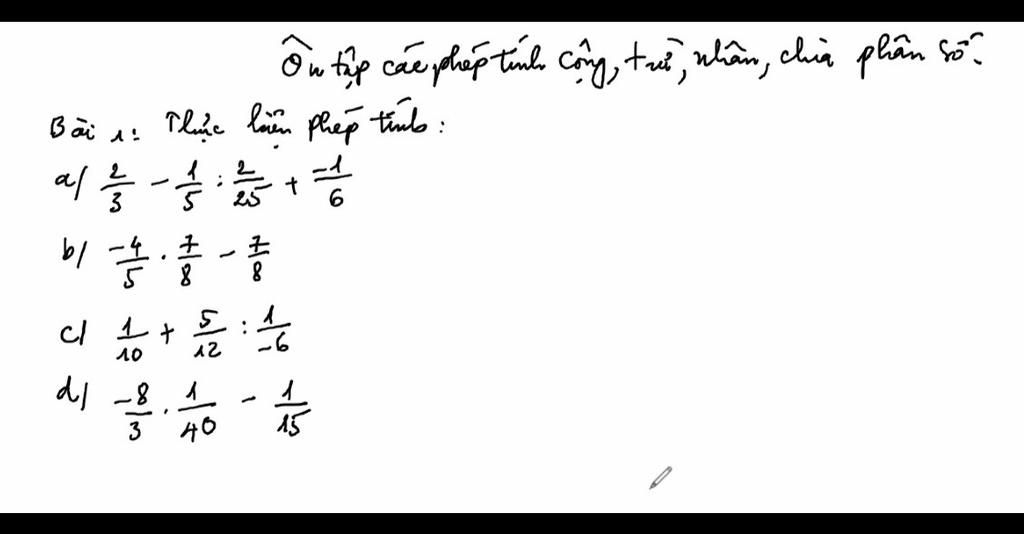 Ôn tập các phép tính cộng, trừ, nhân, chia phân số.
Bài 1: Thực hiện phép tính:
a/ 2/3 - 1/5 : 2/25 + -1/6
b/ -4/5 . 7/8 - 7/8
c/ 1/10 + 5/12 : 1/-6
d/ -8/3 . 1/40 - 1/15